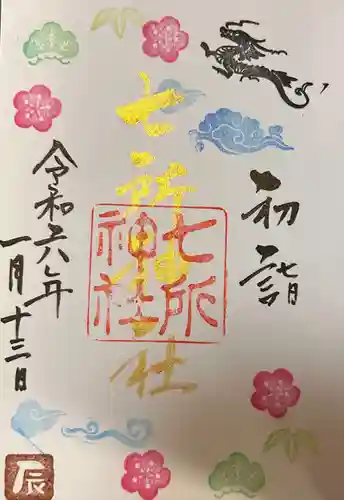 初詣
七所神社
七所
神社
令和六年
一月十三日
辰